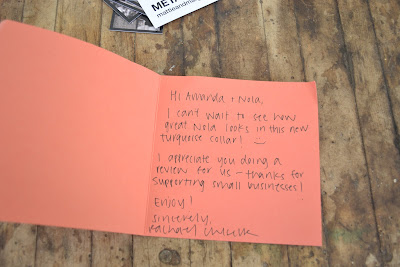 META
Hi Amanda + Nola,
I can't wait to see how
great Nola looks in this new
turquoise collar! :)
I appreciate you doing a
review for us - thanks for
supporting small businesses!
Enjoy!
sincerely,
Rachael